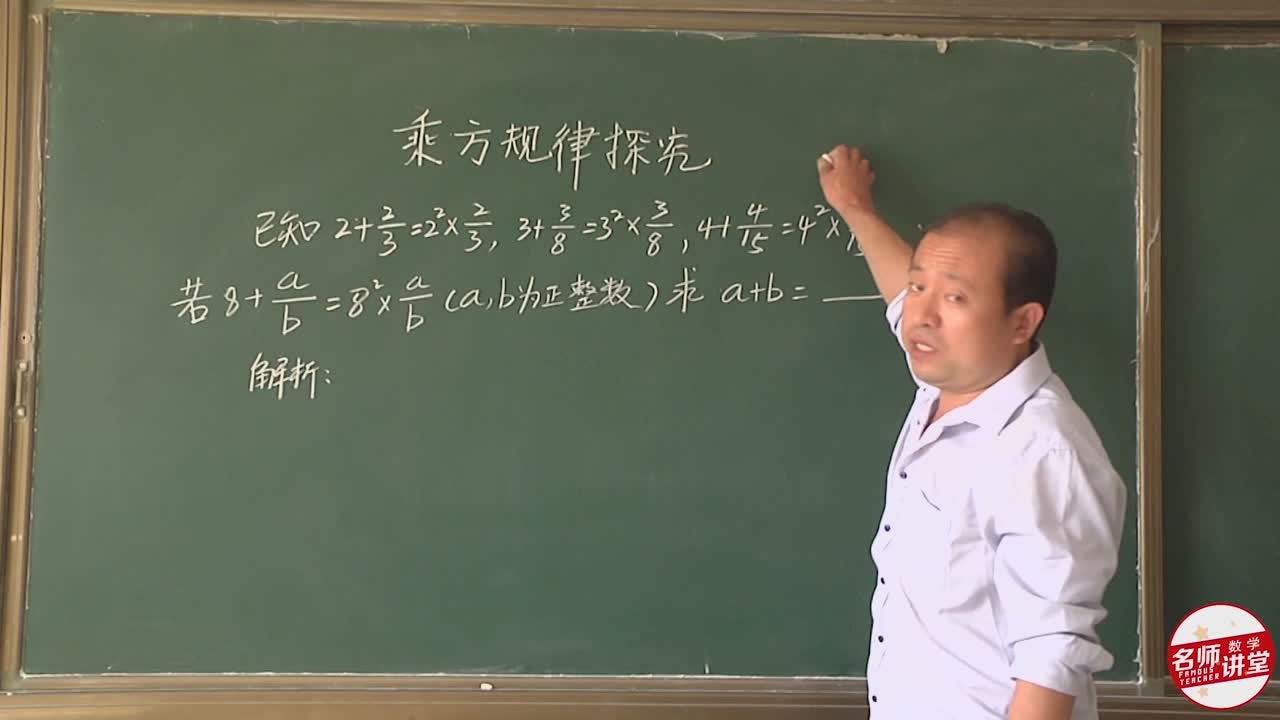 乘方规律探究
已知 2+2/3=2²×2/3, 3+3/8=3²×3/8, 4+4/15=4²×
若 8+a/b=8²×a/b (a,b为正整数) 求 a+b=____
解析:
名师讲堂
数学
FAMOUS TEACHER